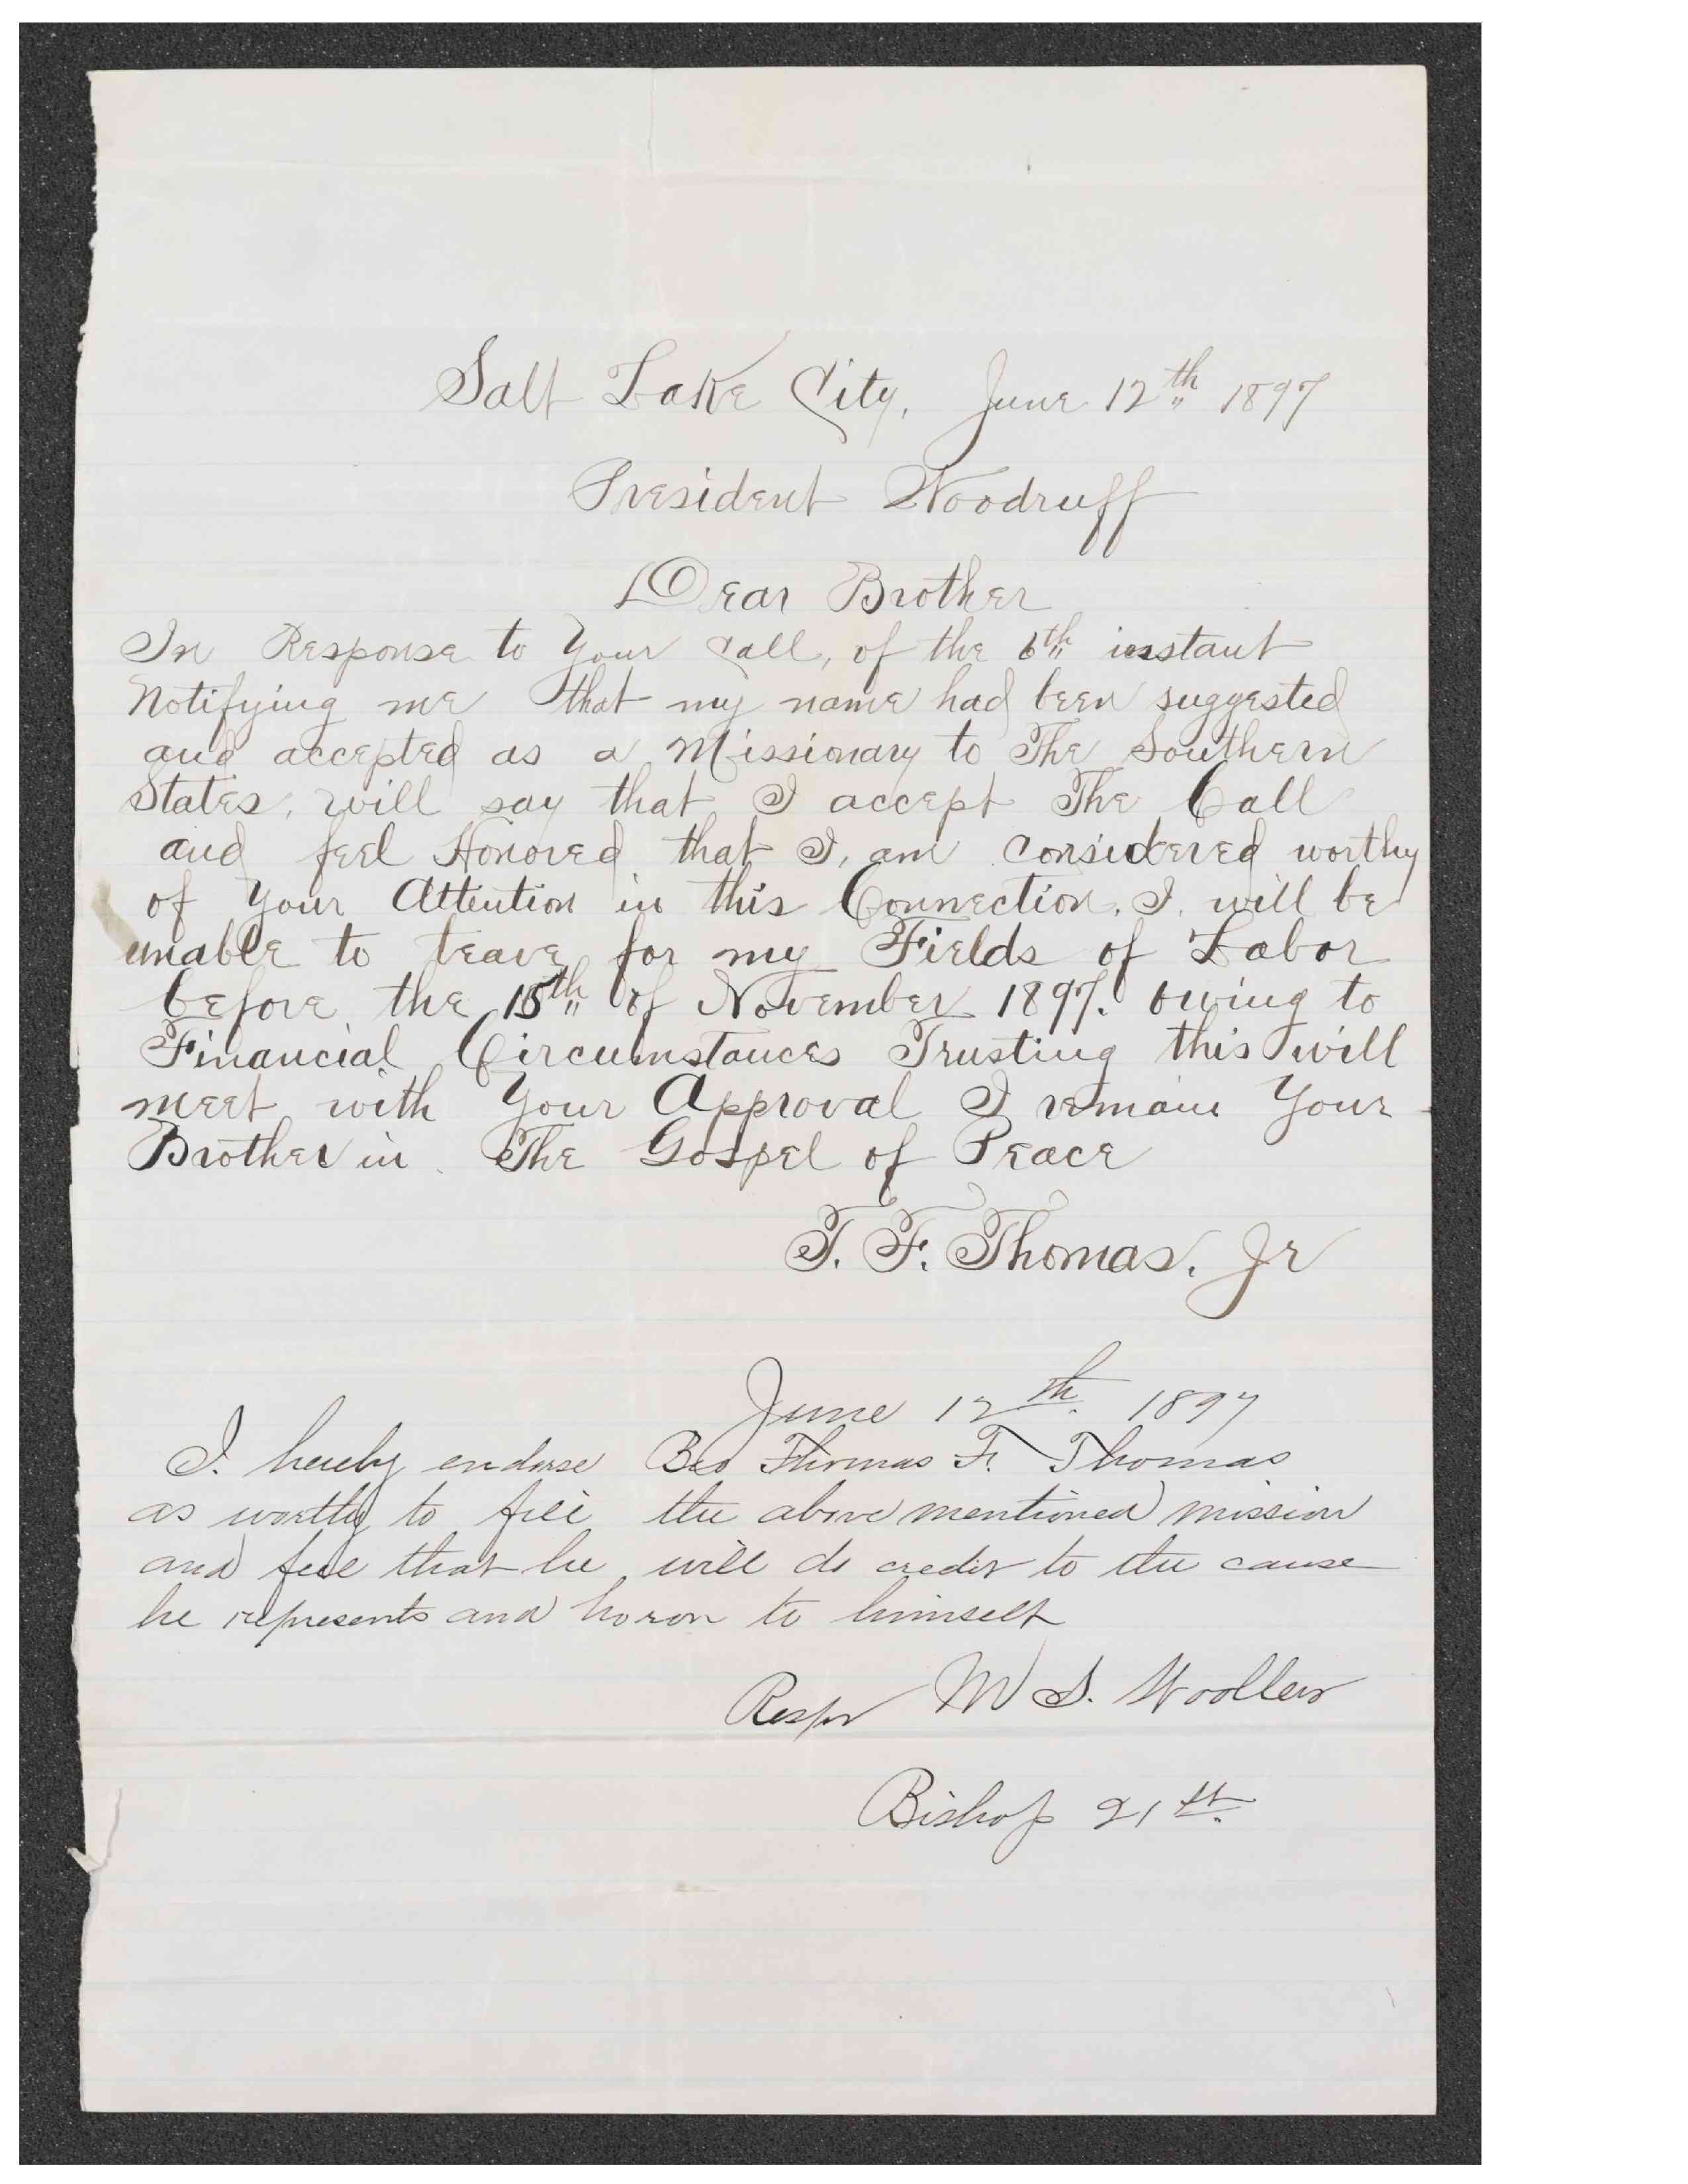 Salt Lake City, June 12th 1897
President Woodruff
Dear Brother
In Response to Your Call, of the 6th instant
Notifying me that my name had been suggested
and accepted as a Missionary to The Southern
States, will say that I accept The Call
and feel Honored that I, am Considered worthy
of Your Attention in this Connection. I. will be
unable to leave for my Fields of Labor
before the 15th of November 1897. owing to
Financial Circumstances Trusting this will
meet with Your Approval I remain Your
Brother in The Gospel of Peace
T. F. Thomas. Jr
June 12th 1897
I. hereby endorse Bro Thomas F. Thomas
as worthy to fill the above mentioned mission
and feel that he will do credit to the cause
he represents and honor to himself
Respy M S. Woolley
Bishop 21st